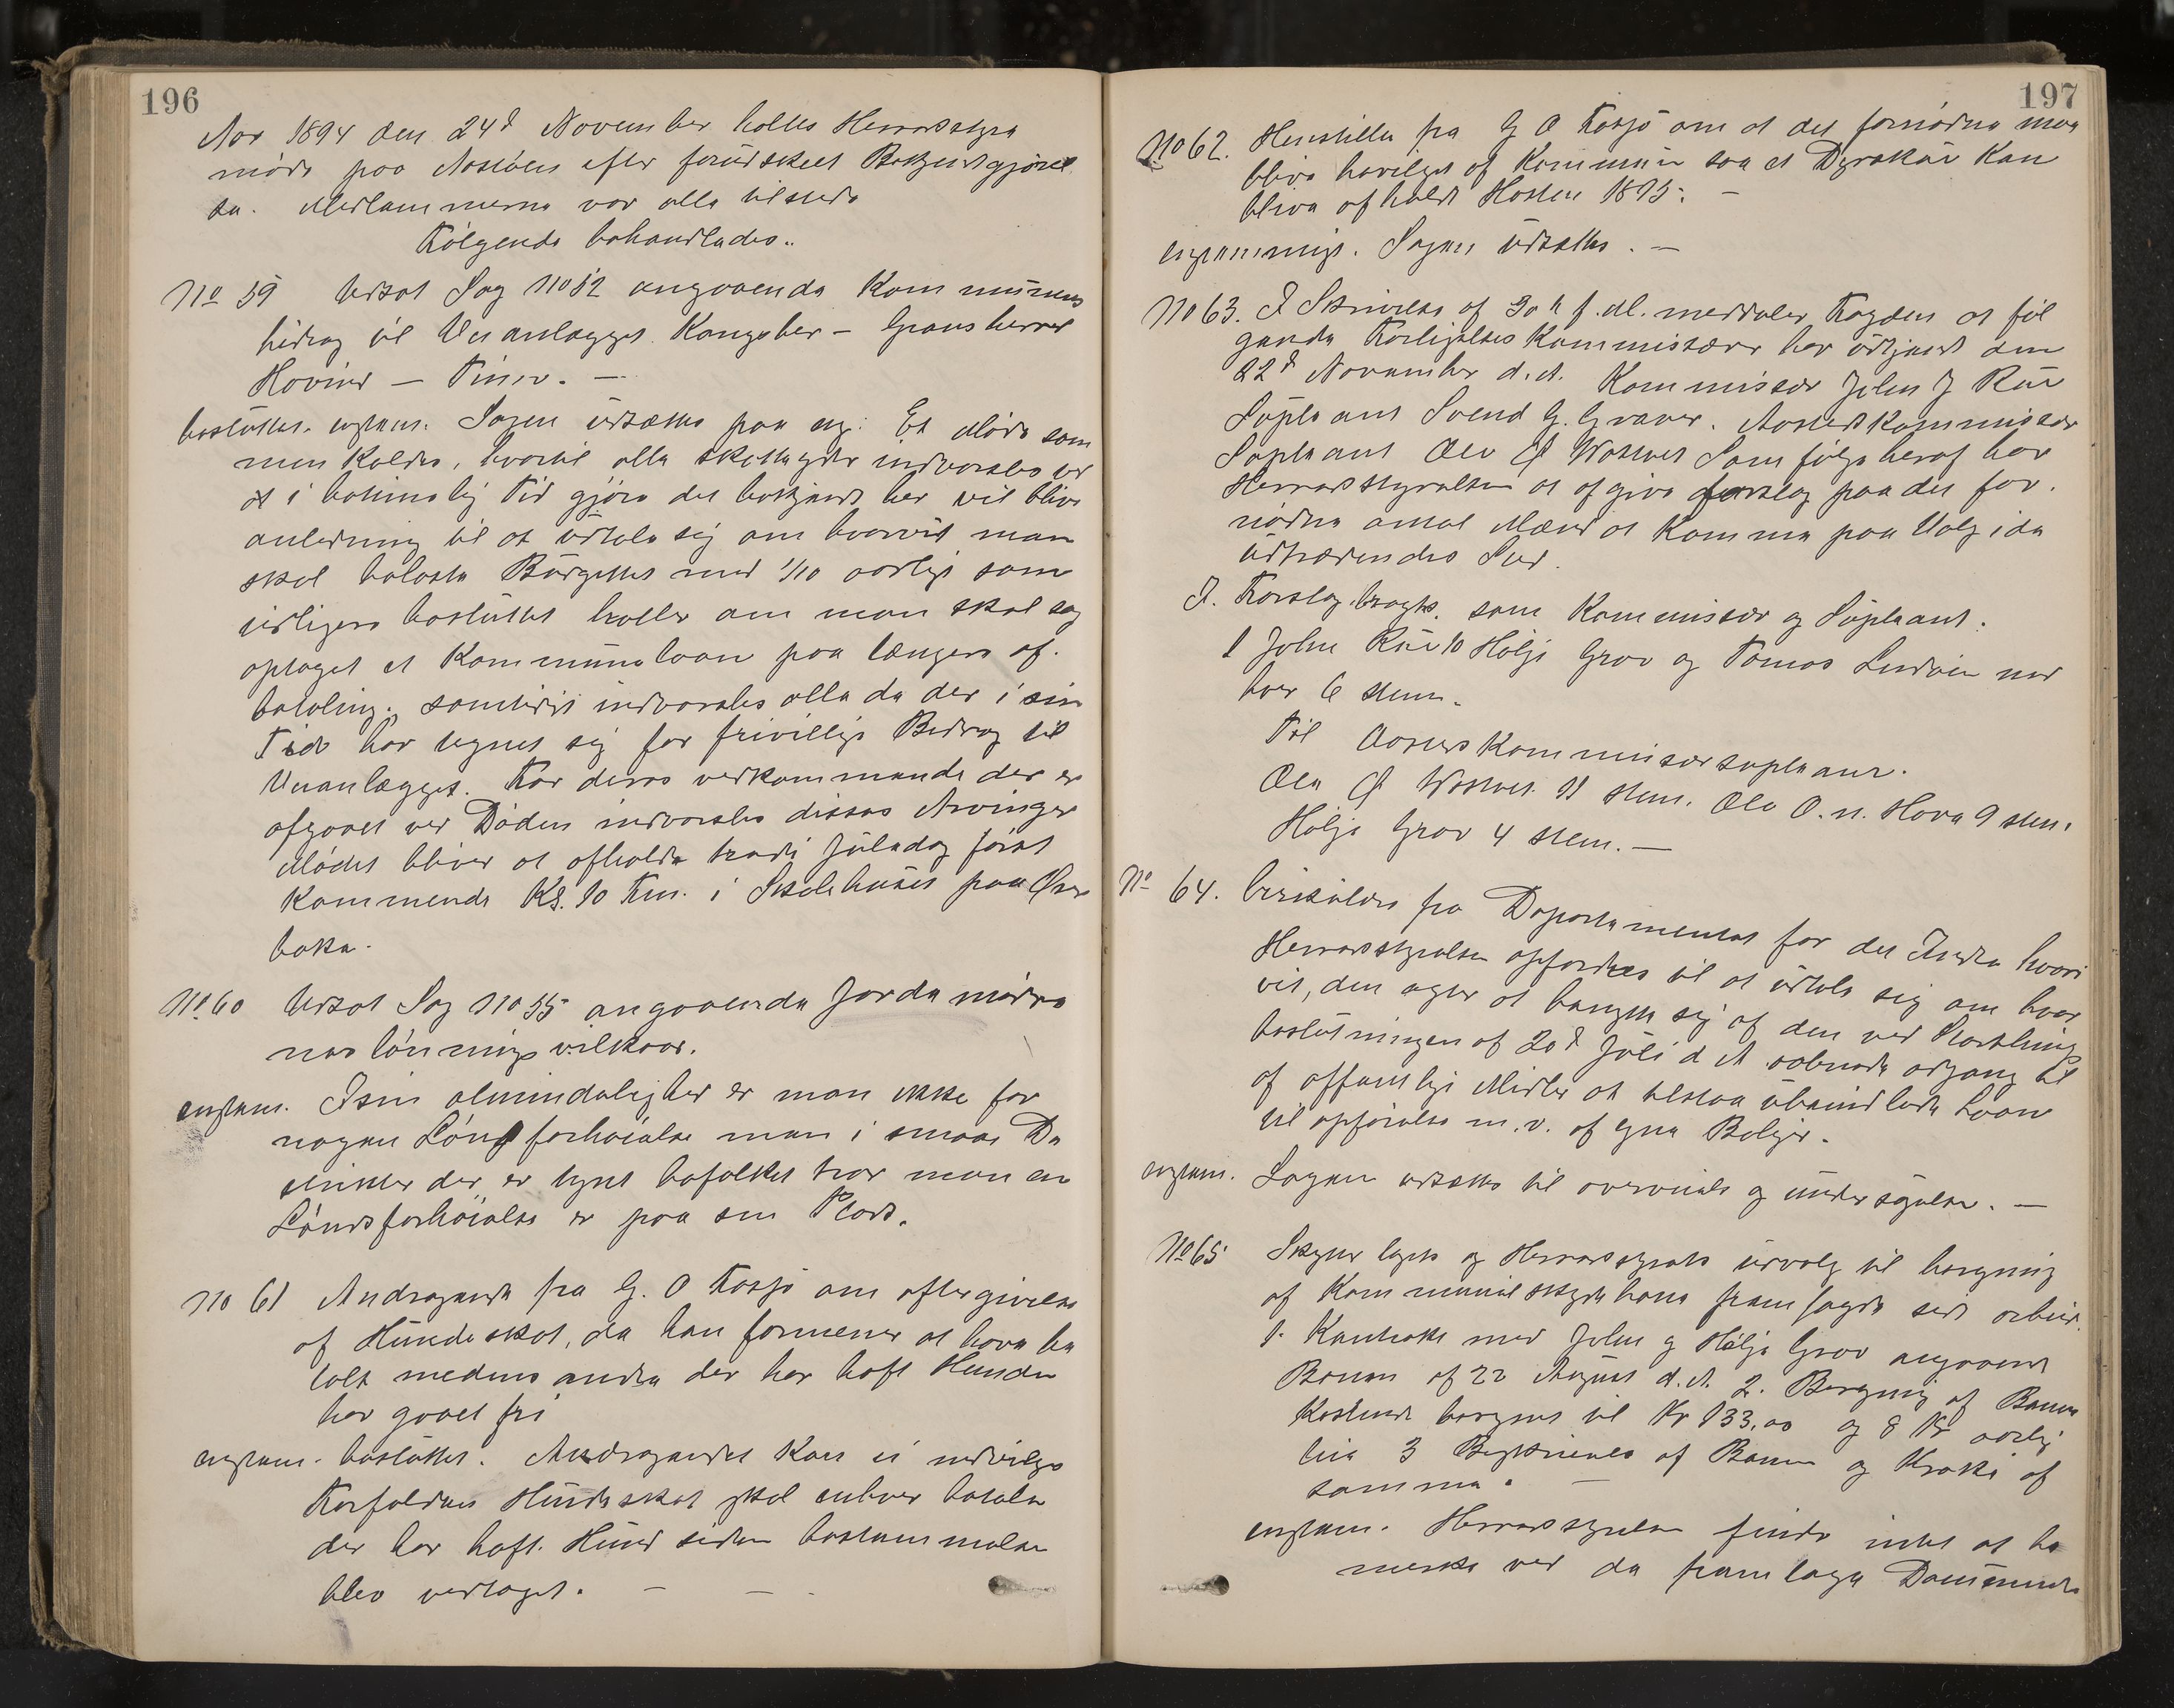 196
Aar 1894 den 24d November holtes Herredsstyre
møde paa Austbøen efter forudskeet Bekjendtgjørel
se. Medlemmerne var alle tilstede
Følgende behandledes..
No 59 Udsat Sag No 52 angaaende Kommunens
bidrag til Veianlægget Kongsber – Gransherred
Hovind – Tinn. –
besluttet. enstem. Sagen udsættes paa ny: Et Møde som
men kaldes, hvortil alle skatteyder indvarsles ved
at i betimelig Tid gjøre det bekjendt her vil blive
anledning til at udtale sig om hvorvidt man
skal belaste Budgettet med 1/10 aarligt som
tidligere besluttet heller om man skal søg
optaget et Kommunelaan paa længere af.
betaling., samtidigt indvarsles alle de der i sin
Tid har tegnet sig for frivilligt Bidrag til
Veianlægget. For deres vedkommende der er
afgaaet ved Døden indvarsles disses Arvinger
Mødet bliver at afholde tredie Juledag først
kommende Kl. 10 Fm. i Skolehuset paa Øver
bøka.
No 60 Udsat Sag No 55 angaaende Jordemødre
nes lønnings vilkaar.
enstem. I sin almindelighed er man ikke for
nogen Løns forhøielse men i smaa Di
strikter der er tynt befolket tror man en
Løndsforhøielse er paa sin Plads.
No 61 Andragende fra G. O Fosjø om eftergivelse
af Hundeskat, da han formener at have be
talt medens andre der har haft Hunde
har gaaet fri
enstem. besluttet. Andragendet kan ei indvilges
Forfalden Hundeskat skal enhver betale
der har haft. Hund siden bestemmelsen
blev vedtaget. –
197
No 62. Henstillen fra G O Fosjø om at det fornødne maa
blive bevilget af Kommunen saa at Dyrskue kan
blive afholdt Høsten 1895. –
enstemmigt. Sagen udsættes. –
No 63. I Skrivelse af 30te f. M. meddeler Fogden at føl
gende Forligelseskommissærer har udtjent den
22d November d. A. Kommissær John J Rue
Supleant Svend G. Graver. Aastedskommissær
Supleant Ole Ø Wostvet Som følge heraf har
Herredsstyrelsen at afgive forslag paa det for.
nødne antal Mænd at komme paa Valg i de
udtrædendes Sted.
I. Forslag bragtes som Kommissær og Supleant.
1 John Rue 10 Hølje Grov og Tomas Lurdvin med
hver 6 stem.
Til Aastedskommissærsupleant.
Ole Ø Wostvet 11 stem. Ole O. n. Hova 9 stem.
Hølje Grov 4 stem. –
No 64. Cirkulære fra Departementet for det Indre hvori
Herredsstyrelsen opfordres til at udtale sig om hvor
vidt, den agter at benytte sig af den ved Storthings
beslutningen af 20d Juli d A aabnede adgang til
af offentlige Midler at tilstaa ubemidlede Laan
til opførelse m. v. af egne Boliger.
enstem. Sagen udsættes til overveielse og undersøgelse. –
No 65 Skytterlagets og Herredsstyrets udvalg til bergning
af Kommunal skydebane fremlagde sit arbeid.
1. Kontrakt med John og Hølje Grov angaaende
Banen af 22 August d. A. 2. Beregning af Banens
kostende beregnet til Kr 133,00 og 8 Kr aarlig
leie 3 Beskrivelse af Banen og Kroki af
samme. –
enstem. Herredsstyrelsen finder intet at be
mærke ved de fremlagte Dokumenter